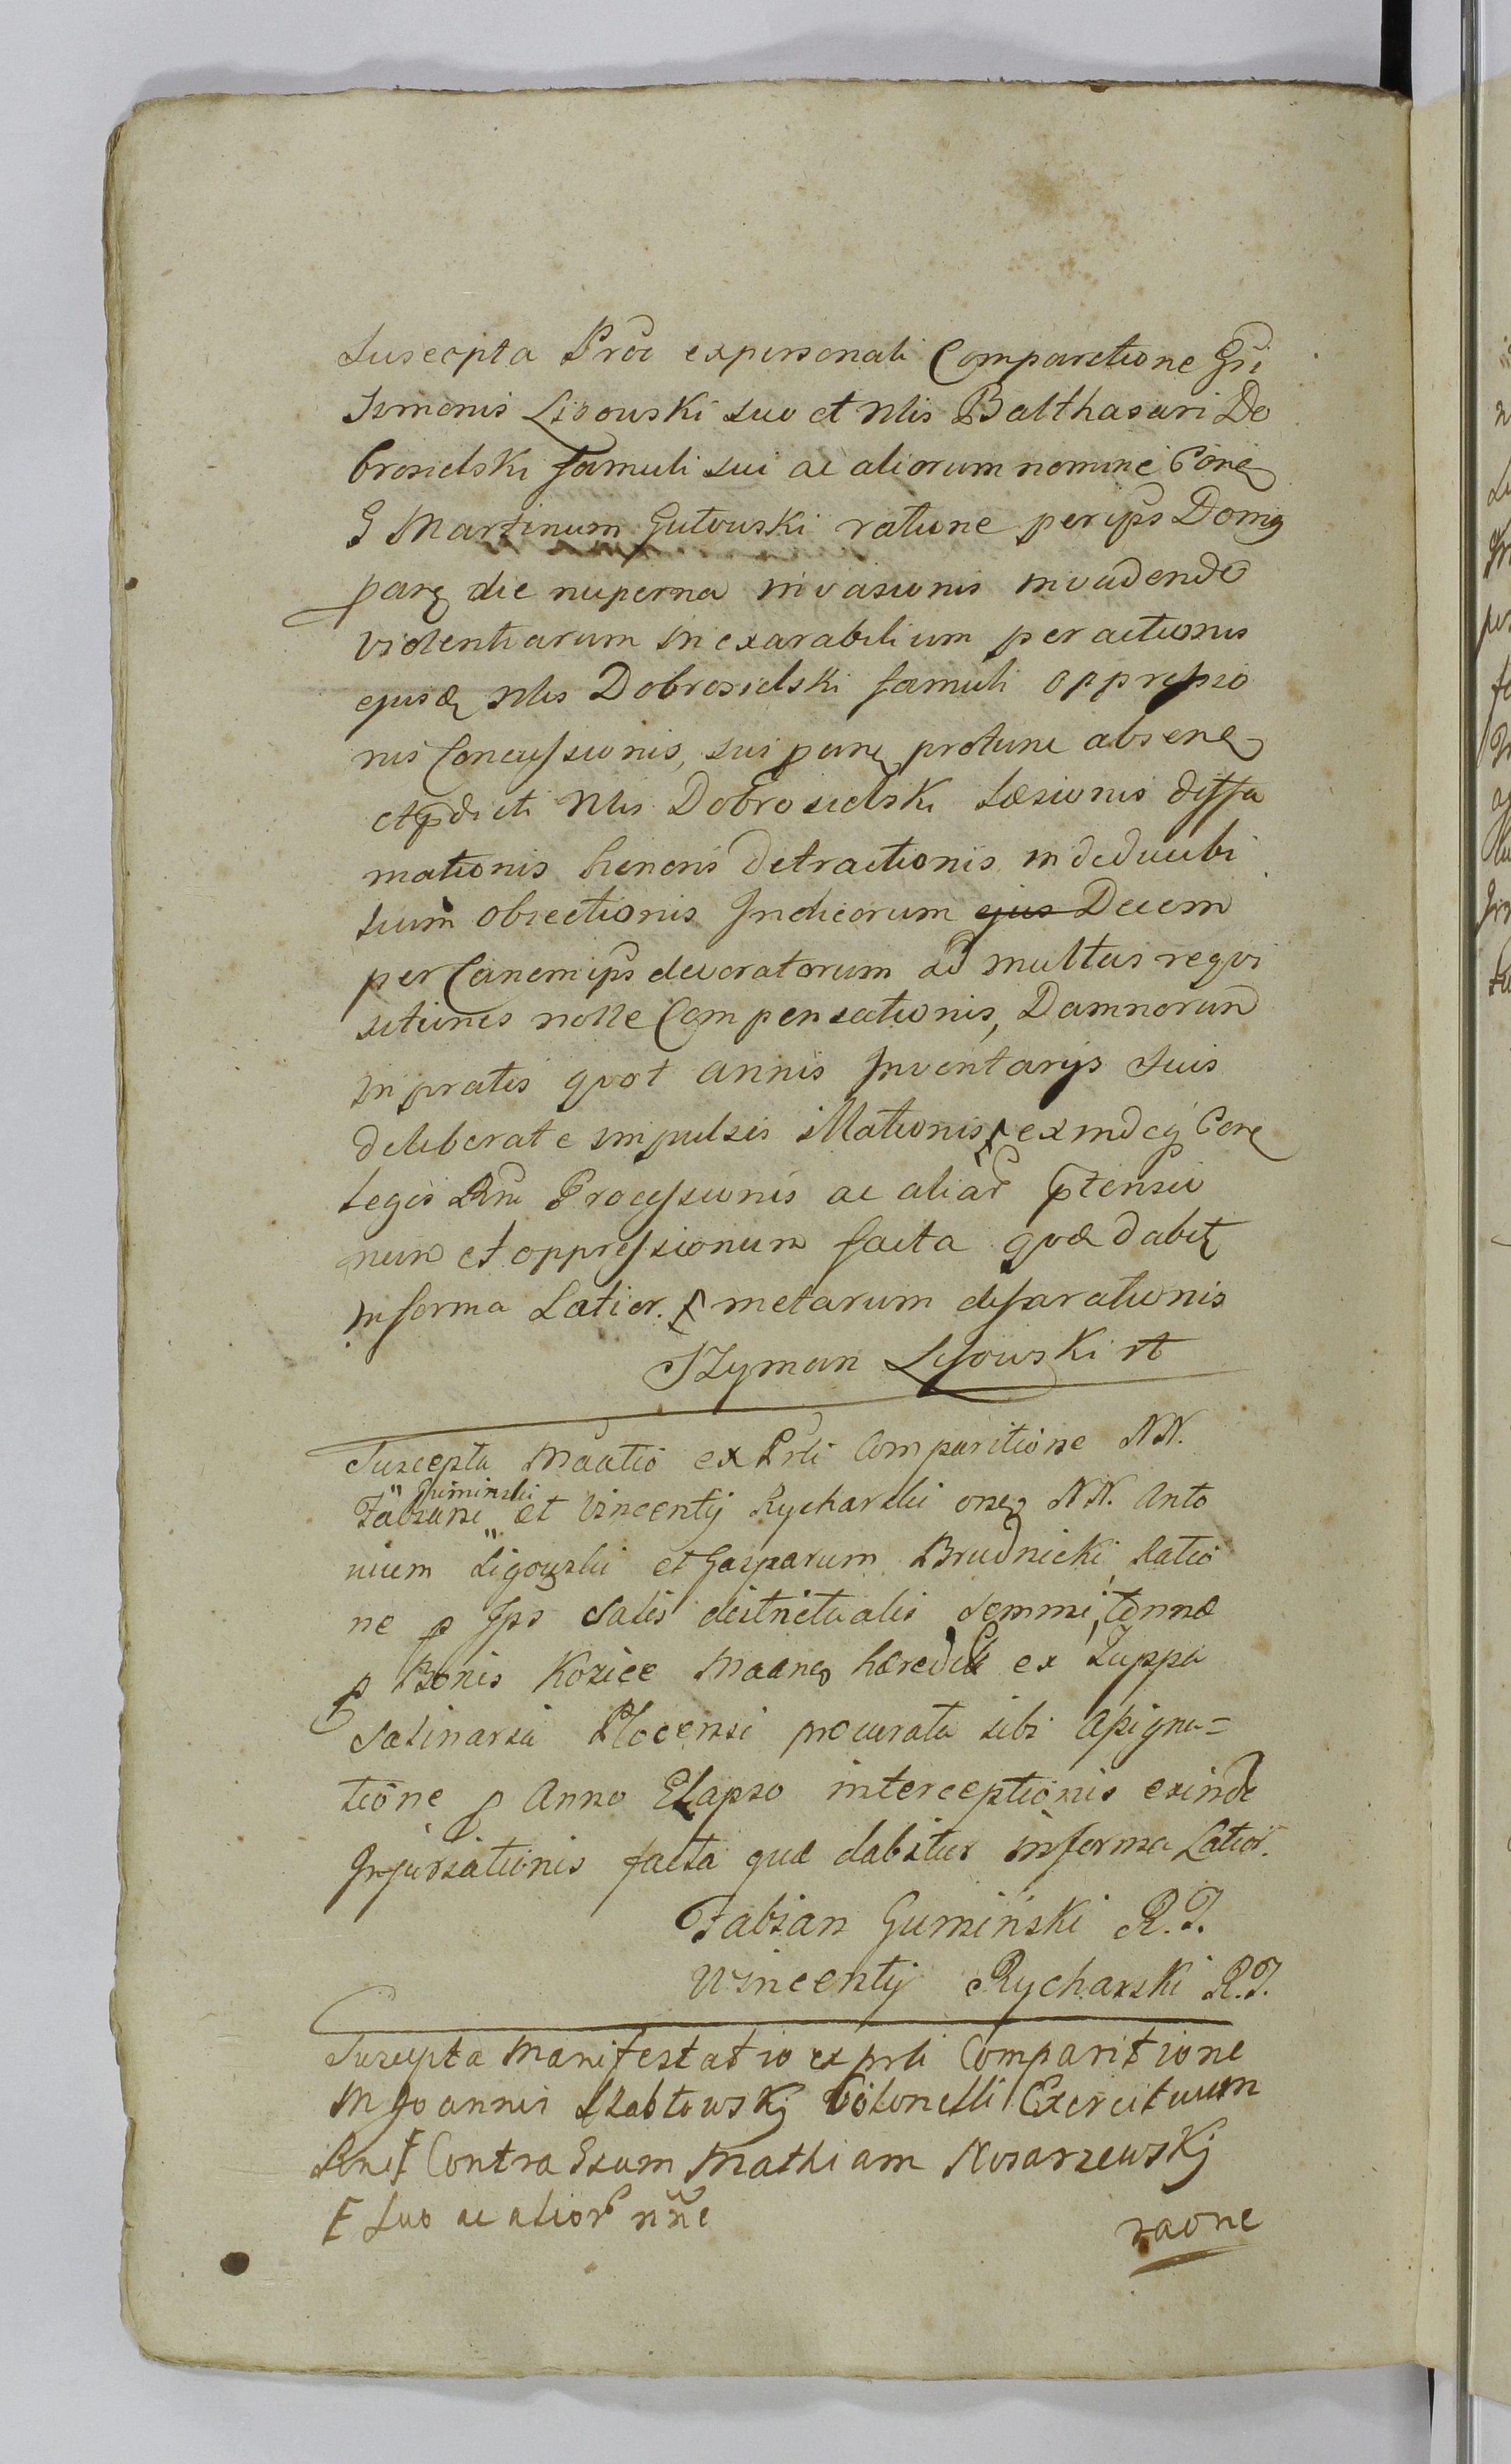 Suscepta Proo expersonali Comparitione Gsi
Simonis Lisowski suo et Nlis Balthasari Do
brosielski famuli sui ac aliorum nomine Cone
G Martinum Gutowski ratione per ips Domq
parq die nuperna invasionis invadendo
violentiarum inexarabilium peractionis
ejusd Nlis Dobrosielski famuli oppressio
nis Concussionis, sui parq protunc absenq
et pdicti Nlis Dobrosielski Læsionis diffa
mationis honoris detractionis in deducibi
lium obiectionis Indicorum ejus Decem
per Canem ips devoratorum ad multas reqvi
sitiones nolle Compensationis, Damnorum
in pratis qvot annis Inventarijs suis
deliberate impulsis illationis, exindeq Cone
Legis Rni Processionis ac aliar ptensio
num et oppressionum facta qvæ dabit
informa Latior. metarum dissarationis
Szyman Lisowski
Suscepta Maatio ex Prli Comparitione NN.
Guminski
Fabiani et Vincentij Rycharski oneq NN. Anto
nium Ligowski et Gasparum Brudnicki, Ratio
ne p Ips Salis districtualis Semmi, tonnæ
p Bonis Kozice Maaneq hæredit ex Zuppa
Salinaria Plocensi procurata sibi assigna=
tione p Anno Elapso interceptionis exinde
Injuriationis facta quæ dabitur informa Latior.
Fabian Gumiński R.T.
Wincenty Rycharski R.T.
Suscepta Manifestatio ex prli Comparitione
M Joannis Szabłowskj Colonelli Exercituum
Rni Contra Gsum Mathiam Nosarzewskj
suo ac alior nne
raone